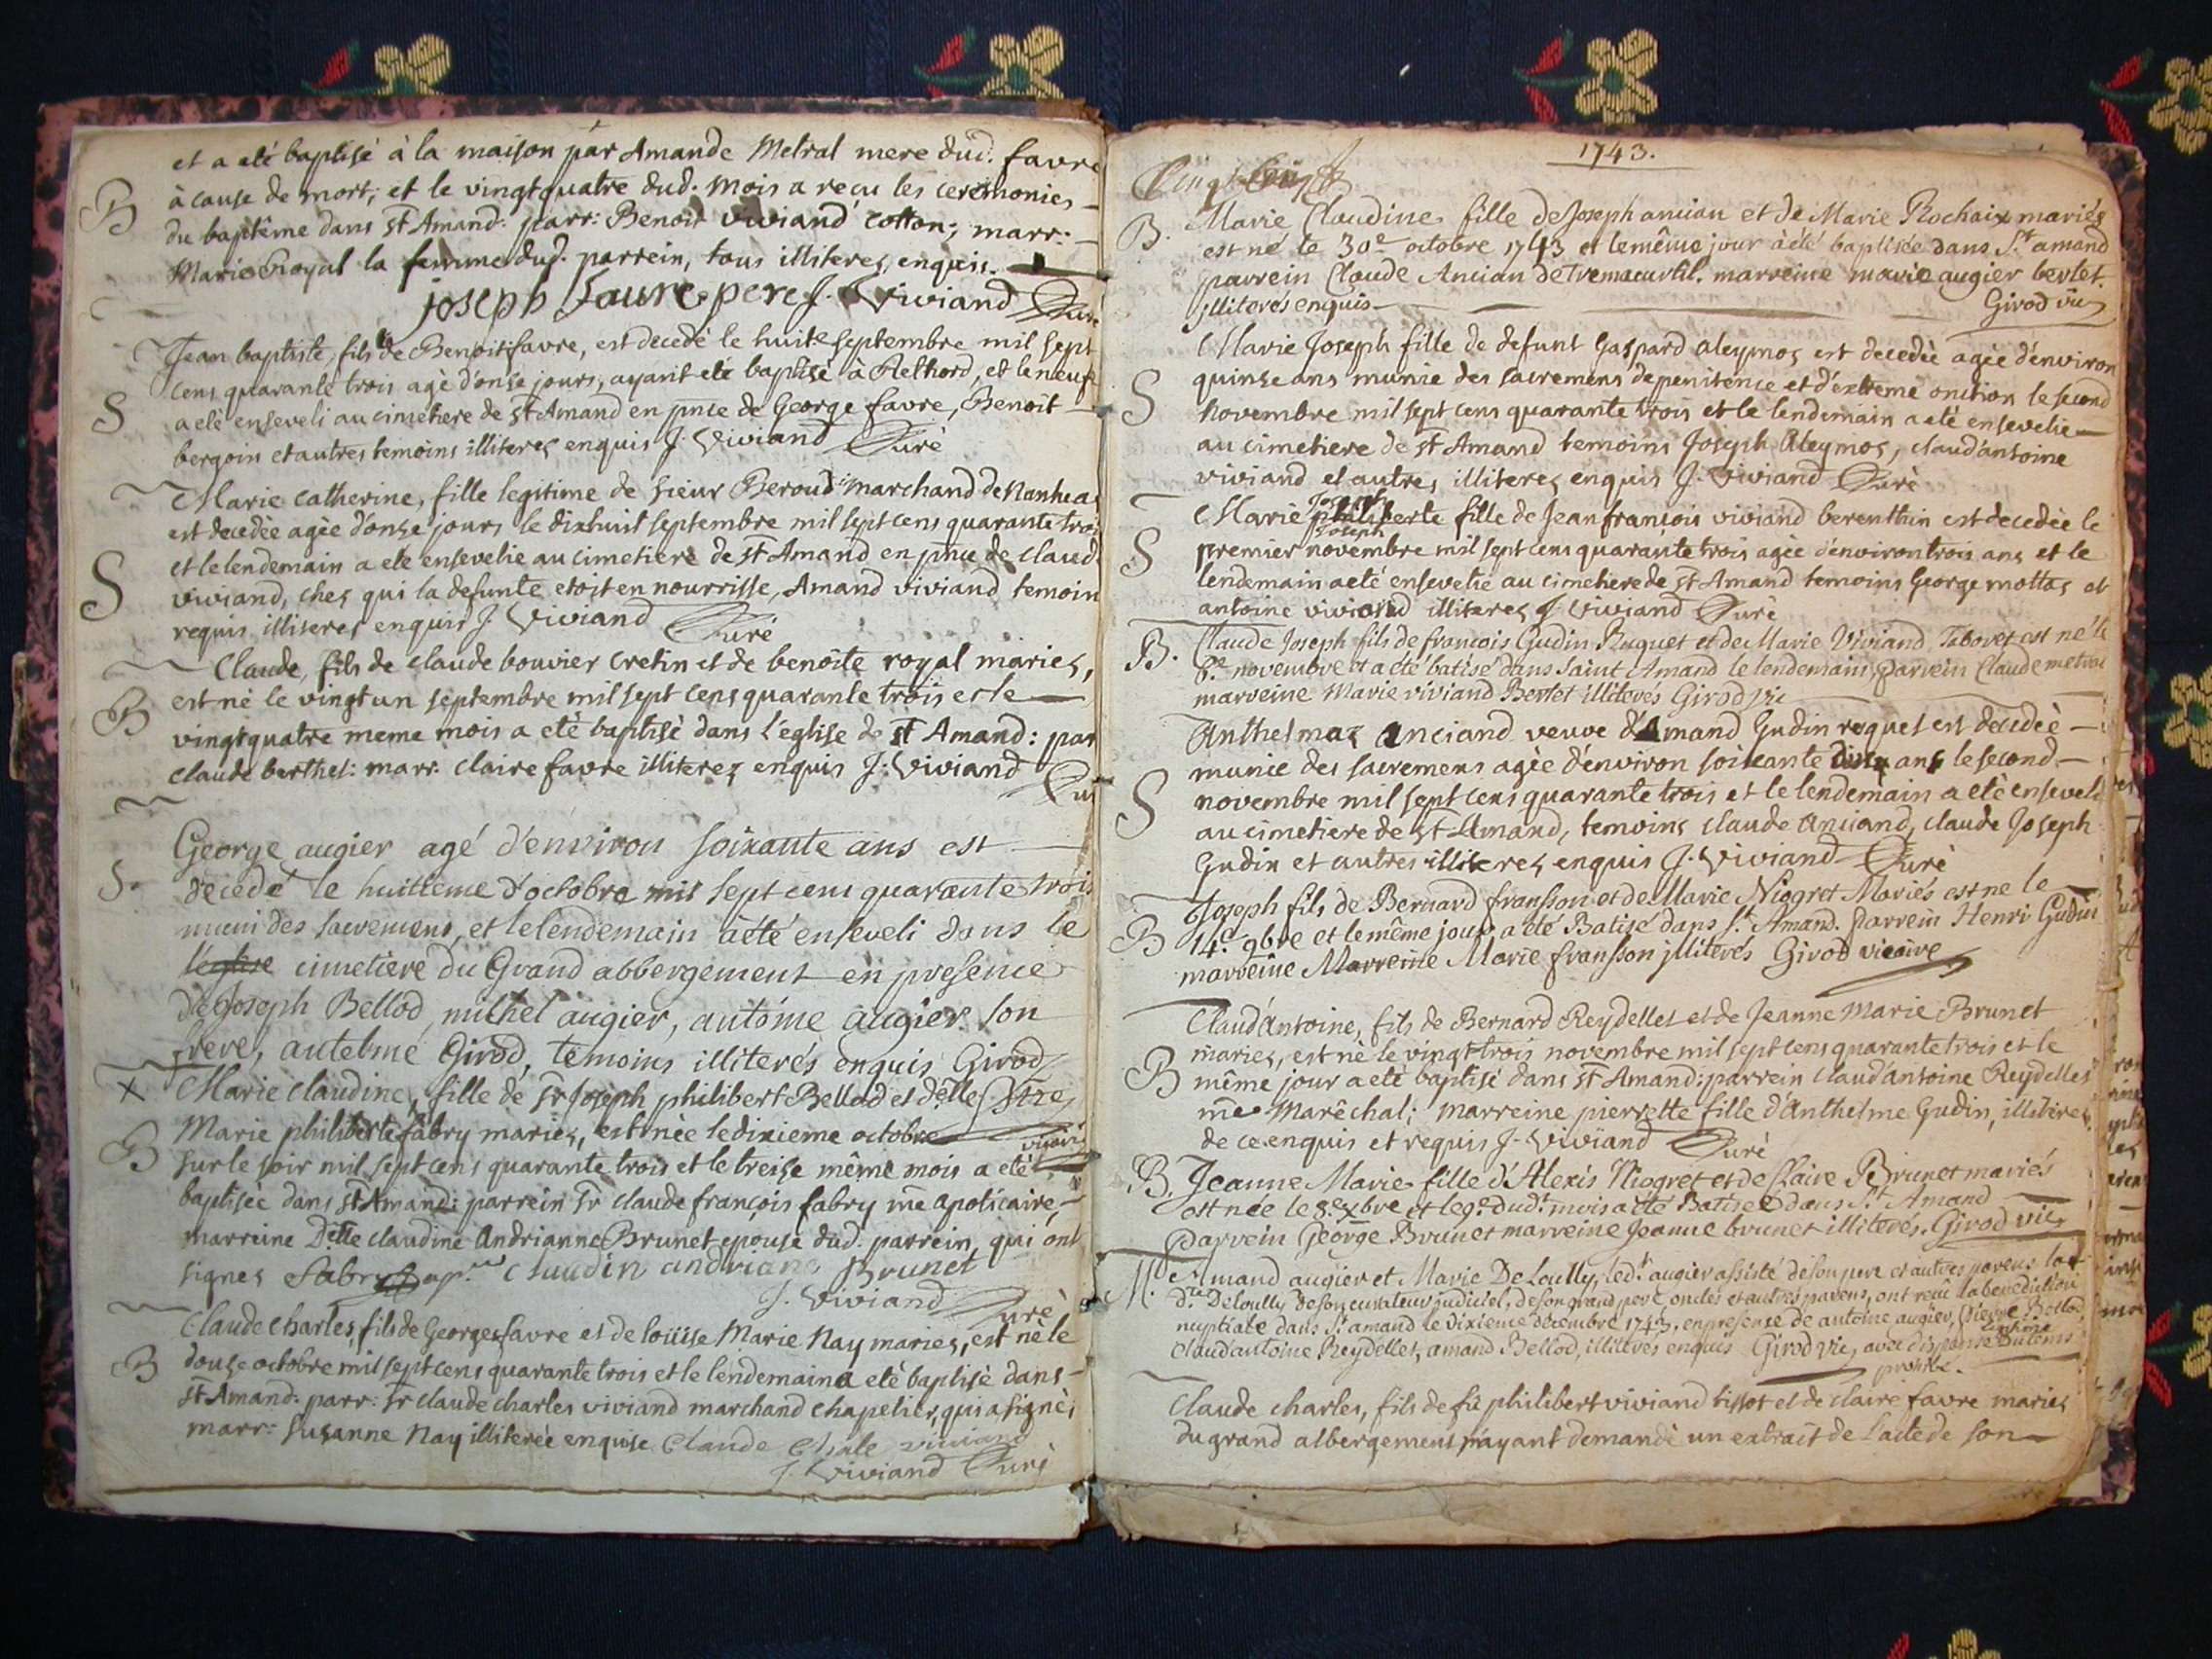 et a eté baptisé à la maison par Amande Metral mere dud. favre
B
à cause de mort, et le vingtquatre dud. mois a reçu les ceremonies
du baptême dans st Amand. parr: Benoit viviand cotton; marr:
Marie Royal la femme dud. parrein, tous illiteres enquis.
joseph faure pere J. Viviand Curé
Jean baptiste, fils de Benoit favre, est decedé le huit septembre mil sept
cens quarante trois agé d'onse jours, ayant eté baptisé à Rethord, et le neuf
S
a eté enseveli au cimetiere de st Amand en pnce de George favre, Benoit
bergoin et autres temoins illiteres enquis J. Viviand Curé
Marie catherine, fille legitime de sieur Beroud marchand de Nantua
est decedée agée d'onse jours le dixhuit septembre mil sept cens quarante trois
et le lendemain a eté ensevelie au cimetiere de st Amand en pnce de claude
S
viviand, ches qui la defunte etoit en nourrisse, Amand viviand temoin
requis illiteres enquis J. Viviand Curé
Claude, fils de claude bouvier cretin et de benoite royal mariés,
est né le vingt un septembre mil sept cens quarante trois et le
B
vingtquatre meme mois a eté baptisé dans l'eglise de st Amand: par
claude berthet: marr. claire favre illiteres enquis J. Viviand Curé
George augier agé d'environ soixante ans est
S.
decedé le huitieme d'octobre mil sept cens quarante trois
muni des sacremens, et le lendemain à été enseveli dans le
l'eglise cimetiere du Grand abbergement en presence
de Joseph Bellod, michel augier, antoine augier son
frere, antelme Girod, temoins illiterés enquis Girod
X
Marie claudine, fille de sr Joseph philibert Bellod et delle
Marie philiberte fabry mariés, est née le dixieme octobre
vicaire
B
sur le soir mil sept cens quarante trois et le treise même mois a eté
baptisée dans st Amand: parrein sr claude françois fabry me apoticaire,
marreine Delle claudine Andrianne Brunet epouse dud. parrein, qui ont
signés Fabry ap.re claudin andriane Brunet
J. Viviand Curé
Claude charles, fils de George favre et de loüise Marie Nay mariés, est né le
B
douse octobre mil sept cens quarante trois et le lendemain a eté baptisé dans
st Amand. parr: sr claude charles viviand marchand chapelier, qui a signé,
marr: susanne Nay illiterée enquise Claude Chale viviand
J. Viviand Curé
1743.
B.
Marie Claudine fille de Joseph ancian et de Marie Rochaix mariés
est né le 30e octobre 1743 et le même jour à été baptisée dans St amand
parrein Claude Ancian de Tremacurtil. marreine marie augier bertet.
jlliterés enquis Girod vic
Marie Joseph fille de defunt Gaspard aleymos est decedée agée d'environ
quinse ans munie des sacremens de penitence et d'extreme onction le second
S
novembre mil sept cens quarante trois et le lendemain a eté ensevelie
au cimetiere de st Amand temoins Joseph Aleymos, claud'antoine
viviand et autres illiteres enquis J. Viviand Curé
Joseph
Marie philiberte fille de Jean francois viviand berenthin est decedée le
Joseph
S
premier novembre mil sept cens quarante trois agée d'environ trois ans et le
lendemain a eté ensevelie au cimetiere de st Amand temoins George mottas et
antoine viviand illiteres J. Viviand Curé
B.
Claude Joseph fils de francois Gudin Ruquet et de Marie Viviand Taboret est né le
8e novembre et a eté batisé dans saint Amand le lendemain, parrein Claude metral
marreine Marie viviand Bertet illiterés Girod vic
Anthelmaz Anciand veuve d'Amand Gudin roquet est decedeé
munie des sacremens agée d'environ soixante ans le second
S
novembre mil sept cens quarante trois et le lendemain a eté ensevelie
au cimetiere de st Amand, temoins claude Anciand, claude Joseph
Gudin et autres illiteres enquis J. Viviand Curé
Joseph fils de Bernard fransson et de Marie Niogret Mariés est ne le
B
14e. 9bre et le même jour a été Batisé dans st. Amand. Parrein Henri Gudin
marreine Marreine Marie fransson jlliterés Girod vicaire
Claud'Antoine, fils de Bernard Reydellet et de Jeanne Marie Brunet
mariés, est né le vingt trois novembre mil sept cens quarante trois et le
B
même jour a eté baptisé dans st Amand: parrein claud'antoine Reydellet
me Marêchal; marreine pierrette fille d'Anthelme Gudin, illiteres
de ce enquis et requis J. Viviand Curé
B.
Jeanne Marie fille d'Alexis Niogret et de Claire Brunet mariés
est née le 8e xbre et le 9e dudt mois a été Batisee dans St. Amand
parrein George Brunet marreine Jeanne brunet illiterés. Girod vic
M.
Amand augier et Marie De Loully, ledt augier assisté de son pere et autres parens la
dte Deloully de son curateur judiciel, de son grand pere oncles et autres parens, ont recu la benediction
nuptiale dans St. amand le dixieme decembre 1743. en presense de antoine augier, Pierre Bellod,
Claud'antoine Reydellet, amand Bellod, illiterés enquis Girod vic, avec dispense du tems
prohibé.
Claude charles, fils de fû philibert viviand tissot et de claire favre mariés
du grand albergement n'ayant demandé un extrait de l'acte de son